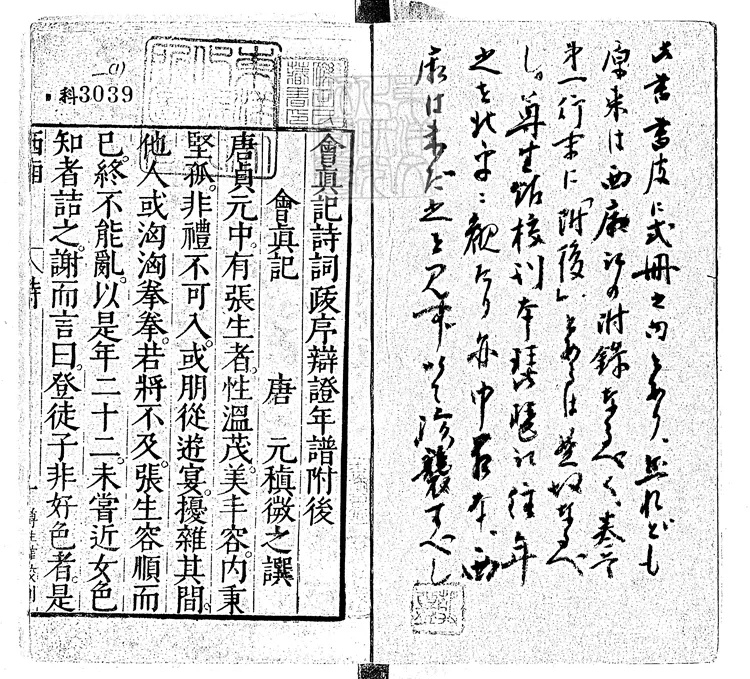 此書書皮に弐冊之内とあり、然れども
原来は西廂記の附録なるべく、巻首
第一行末に「附後」とあるは其故なるべ
し。尊生館校刊本琵琶記往年
之を北平に観たり亦巾箱本、西
廂は未だ之を見ず以て珍襲すべし
科3039
會眞記詩詞䟦序辯證年譜附後
會眞記 唐 元稹微之譔
唐貞元中。有張生者。性溫茂。美丰容。內秉
堅孤。非禮不可入。或朋從遊宴。擾雜其間。
他人或洶洶拳拳。若將不及。張生容順而
已。終不能亂。以是年二十二。未嘗近女色
知者詰之。謝而言曰。登徒子非好色者。是